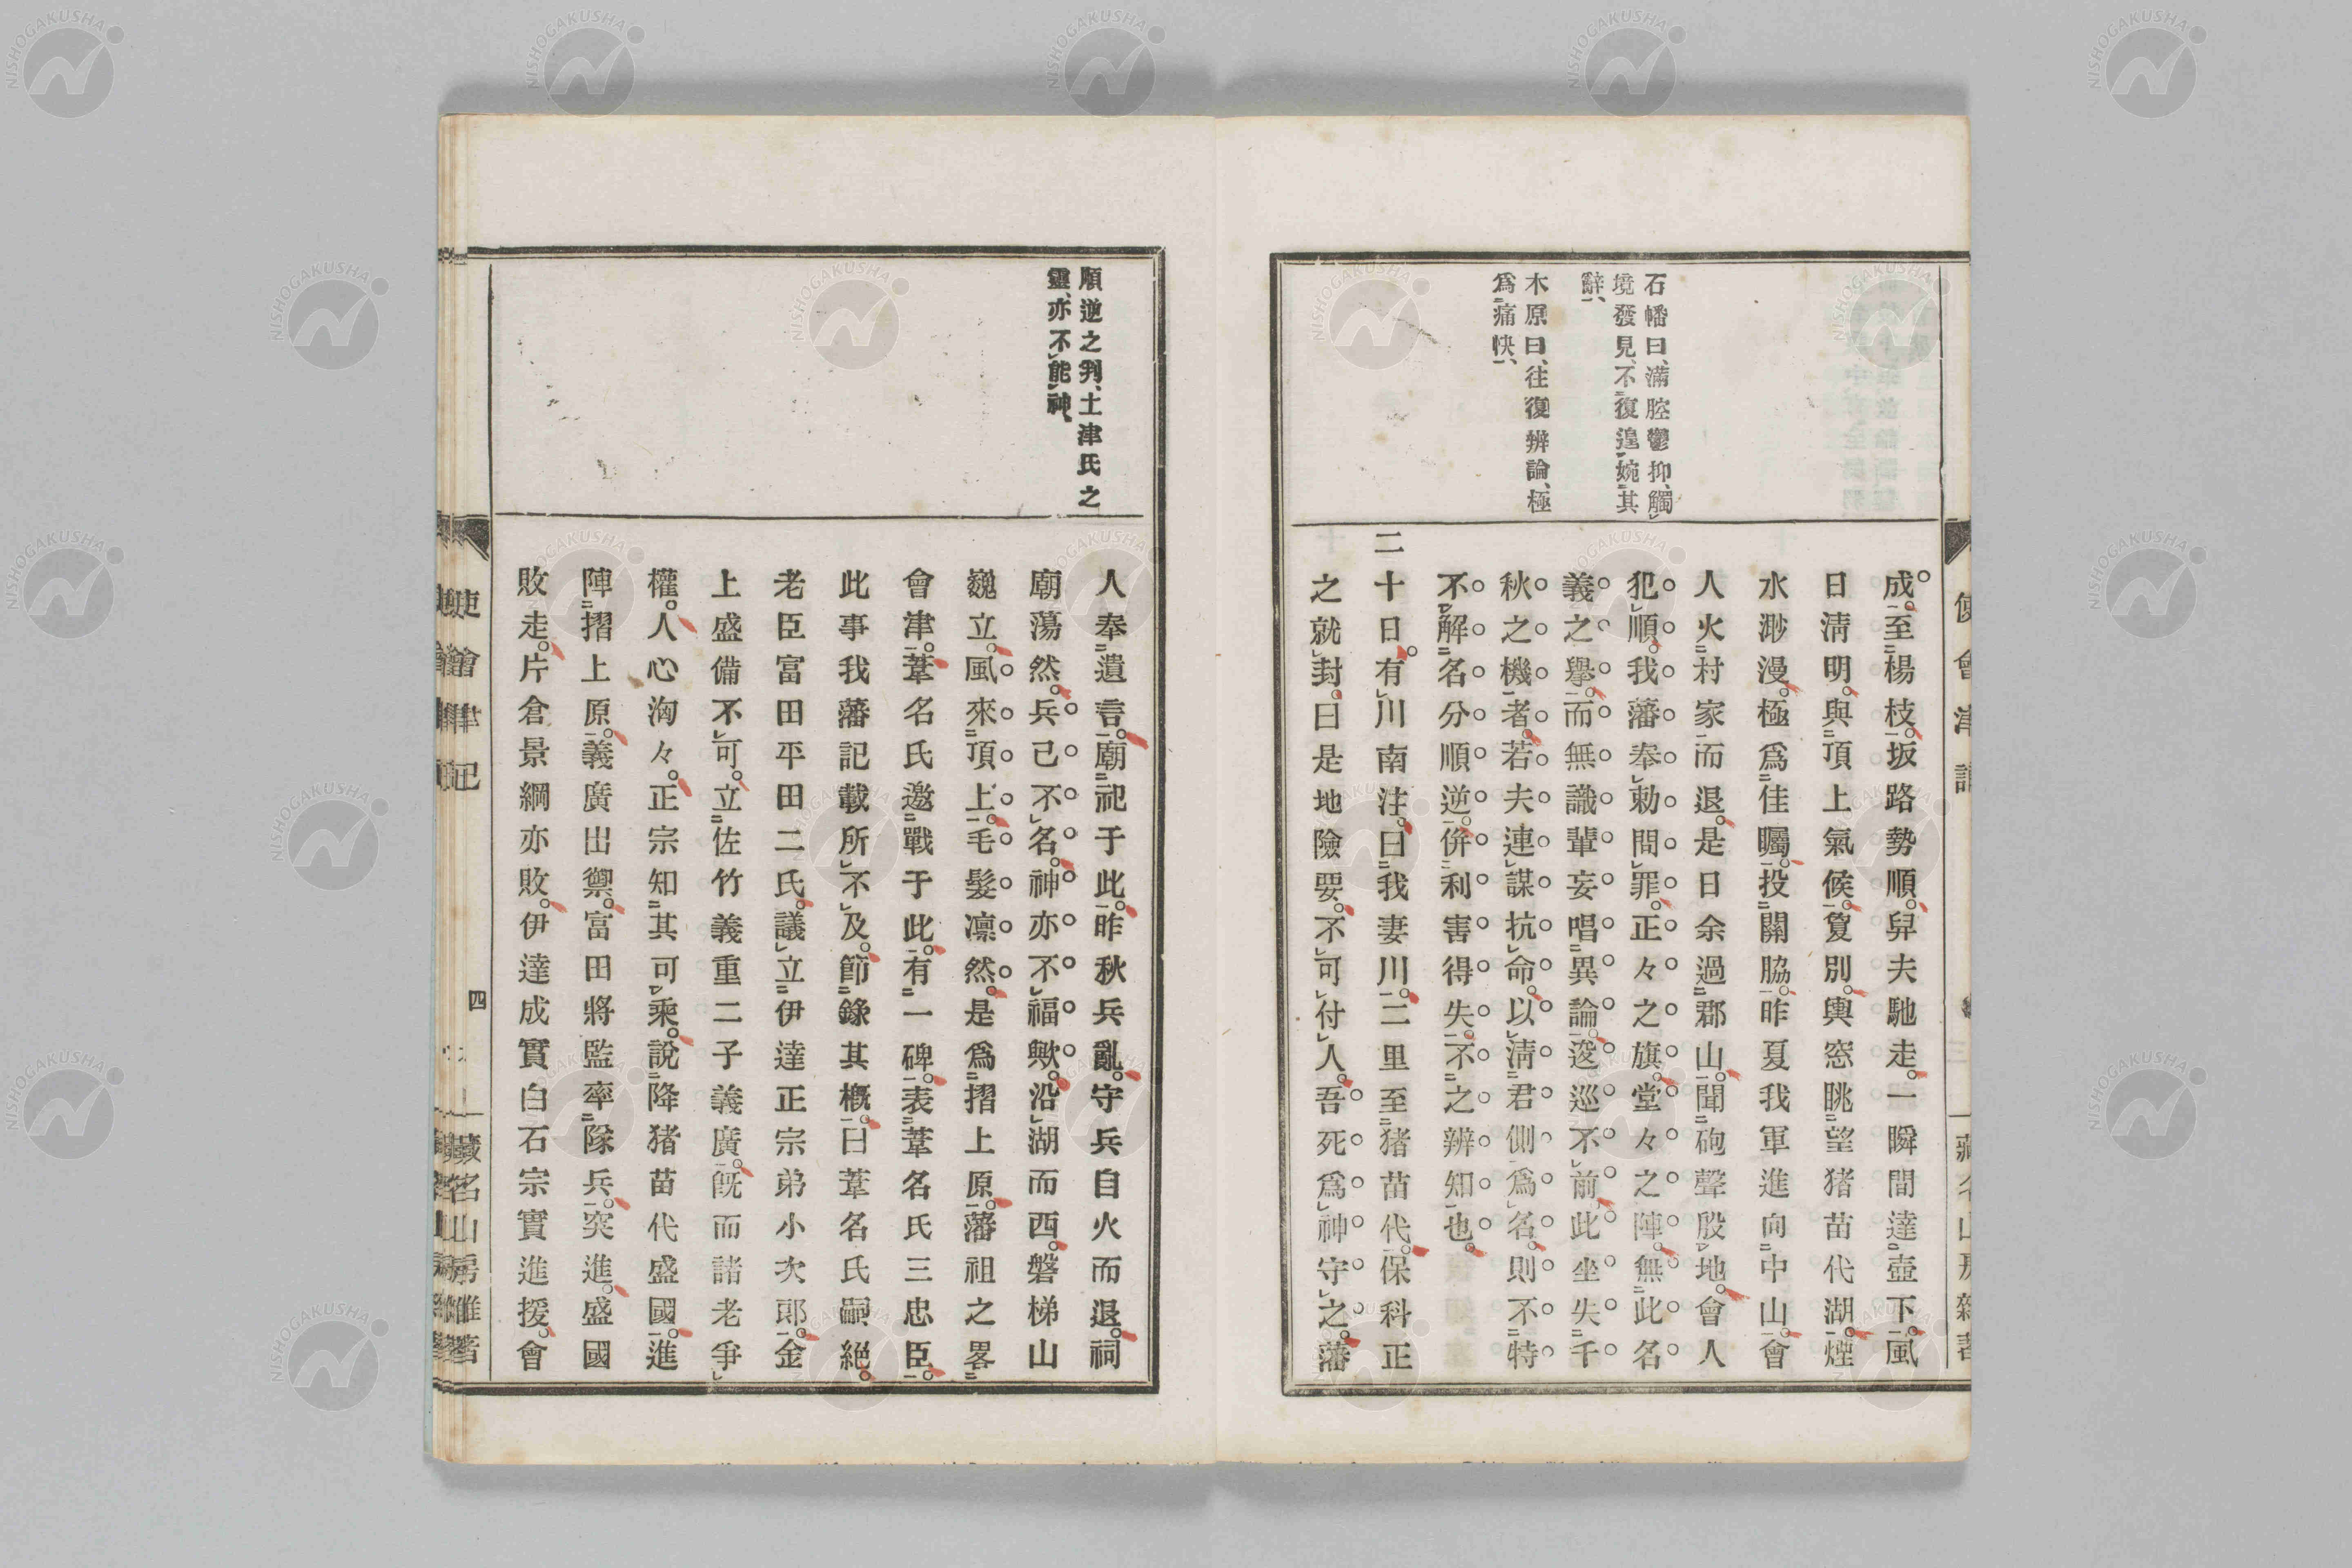 石幡曰、滿腔鬱抑、觸
境發見、不復遑婉其
辭、
木原曰、往復辨論、極
爲痛快、
成。至楊枝。坂路勢順。舁夫馳走。一瞬間達壺下。風
日淸明。與頂上氣候。敻別。輿窓眺望猪苗代湖。煙
水渺漫。極爲佳矚。投關脇。昨夏我軍進向中山。會
人火村家而退。是日余過郡山。聞砲聲殷地。會人
犯順。我藩奉勅問罪。正々之旗。堂々之陣。無此名
義之擧。而無識輩妄唱異論。逡巡不前。此坐失千
秋之機者。若夫連謀抗命。以淸君側爲名。則不特
不解名分順逆。併利害得失。不之辨知也。
二十日。有川南注。曰我妻川。二里至猪苗代。保科正
之就封。曰是地險要。不可付人。吾死爲神守之。藩
順逆之判、土津氏之
靈、亦不能神、
人奉遺言。廟祀于此。昨秋兵亂。守兵自火而退。祠
廟蕩然。兵己不名。神亦不福歟。沿湖而西。磐梯山
巍立。風來頂上。毛髮凛然。是爲摺上原。藩祖之畧
會津。葦名氏邀戰于此。有一碑。表葦名氏三忠臣。
此事我藩記載所不及。節錄其槪。曰葦名氏嗣絕。
老臣富田平田二氏。議立伊達正宗弟小次郎。金
上盛備不可。立佐竹義重二子義廣。旣而諸老爭
權。人心洶々。正宗知其可乘。說降猪苗代盛國。進
陣摺上原。義廣出禦。富田將監率隊兵。突進。盛國
敗走。片倉景綱亦敗。伊達成實白石宗實進援。會
四
藏名山房雜著